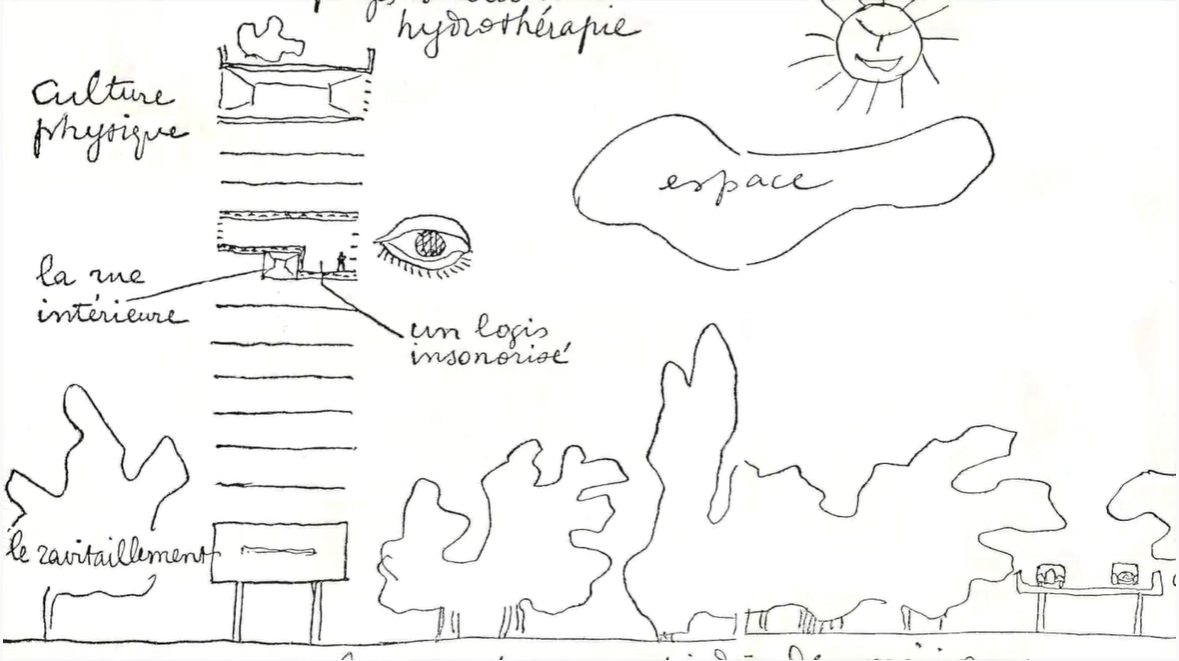 hydrothérapie
culture
physique
espace
la rue
intérieure
un logis
insonorisé
le ravitaillement